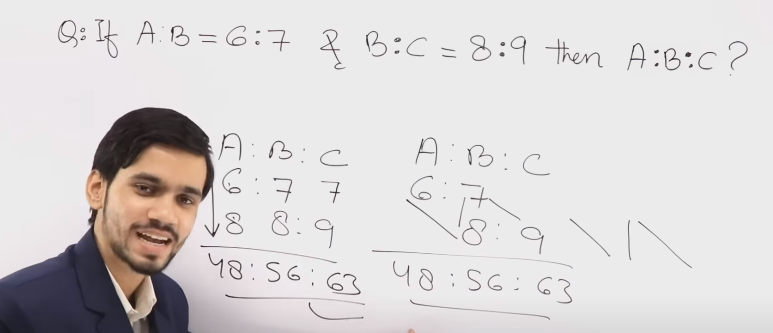 Q: If A:B = 6:7 & B:C = 8:9 then A:B:C?
A : B : C
6 : 7 7
8 8 : 9
48 : 56 : 63
A : B : C
6 : 7
8 : 9
48 : 56 : 63